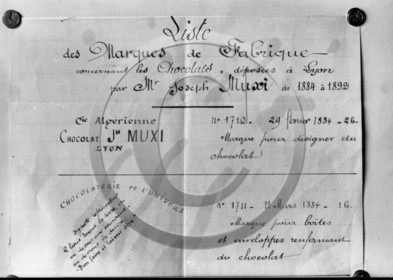 Liste
des Marques de Fabrique
concernant les Chocolats, déposées à Lyon
par Mr Joseph Muxi de 1884 à 1899
Cie Algérienne
CHOCOLAT Jh MUXI
LYON
No 1710. 29 février 1884 - 26.
Marque pour désigner du
chocolat
CHOCOLATERIE DE L'UNIVERS
No 1711 - 11 Mars 1884 - 16.
Marque pour boîtes
et enveloppes renfermant
du chocolat